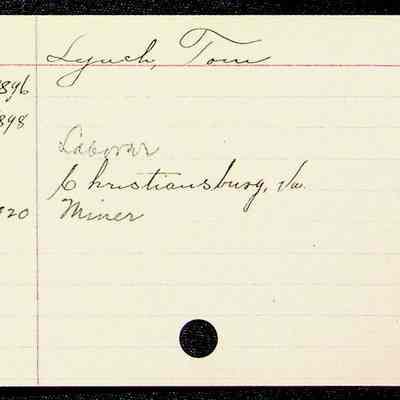 Lynch, Tom
896
898
Laborer
Christiansburg, Va.
920 Miner